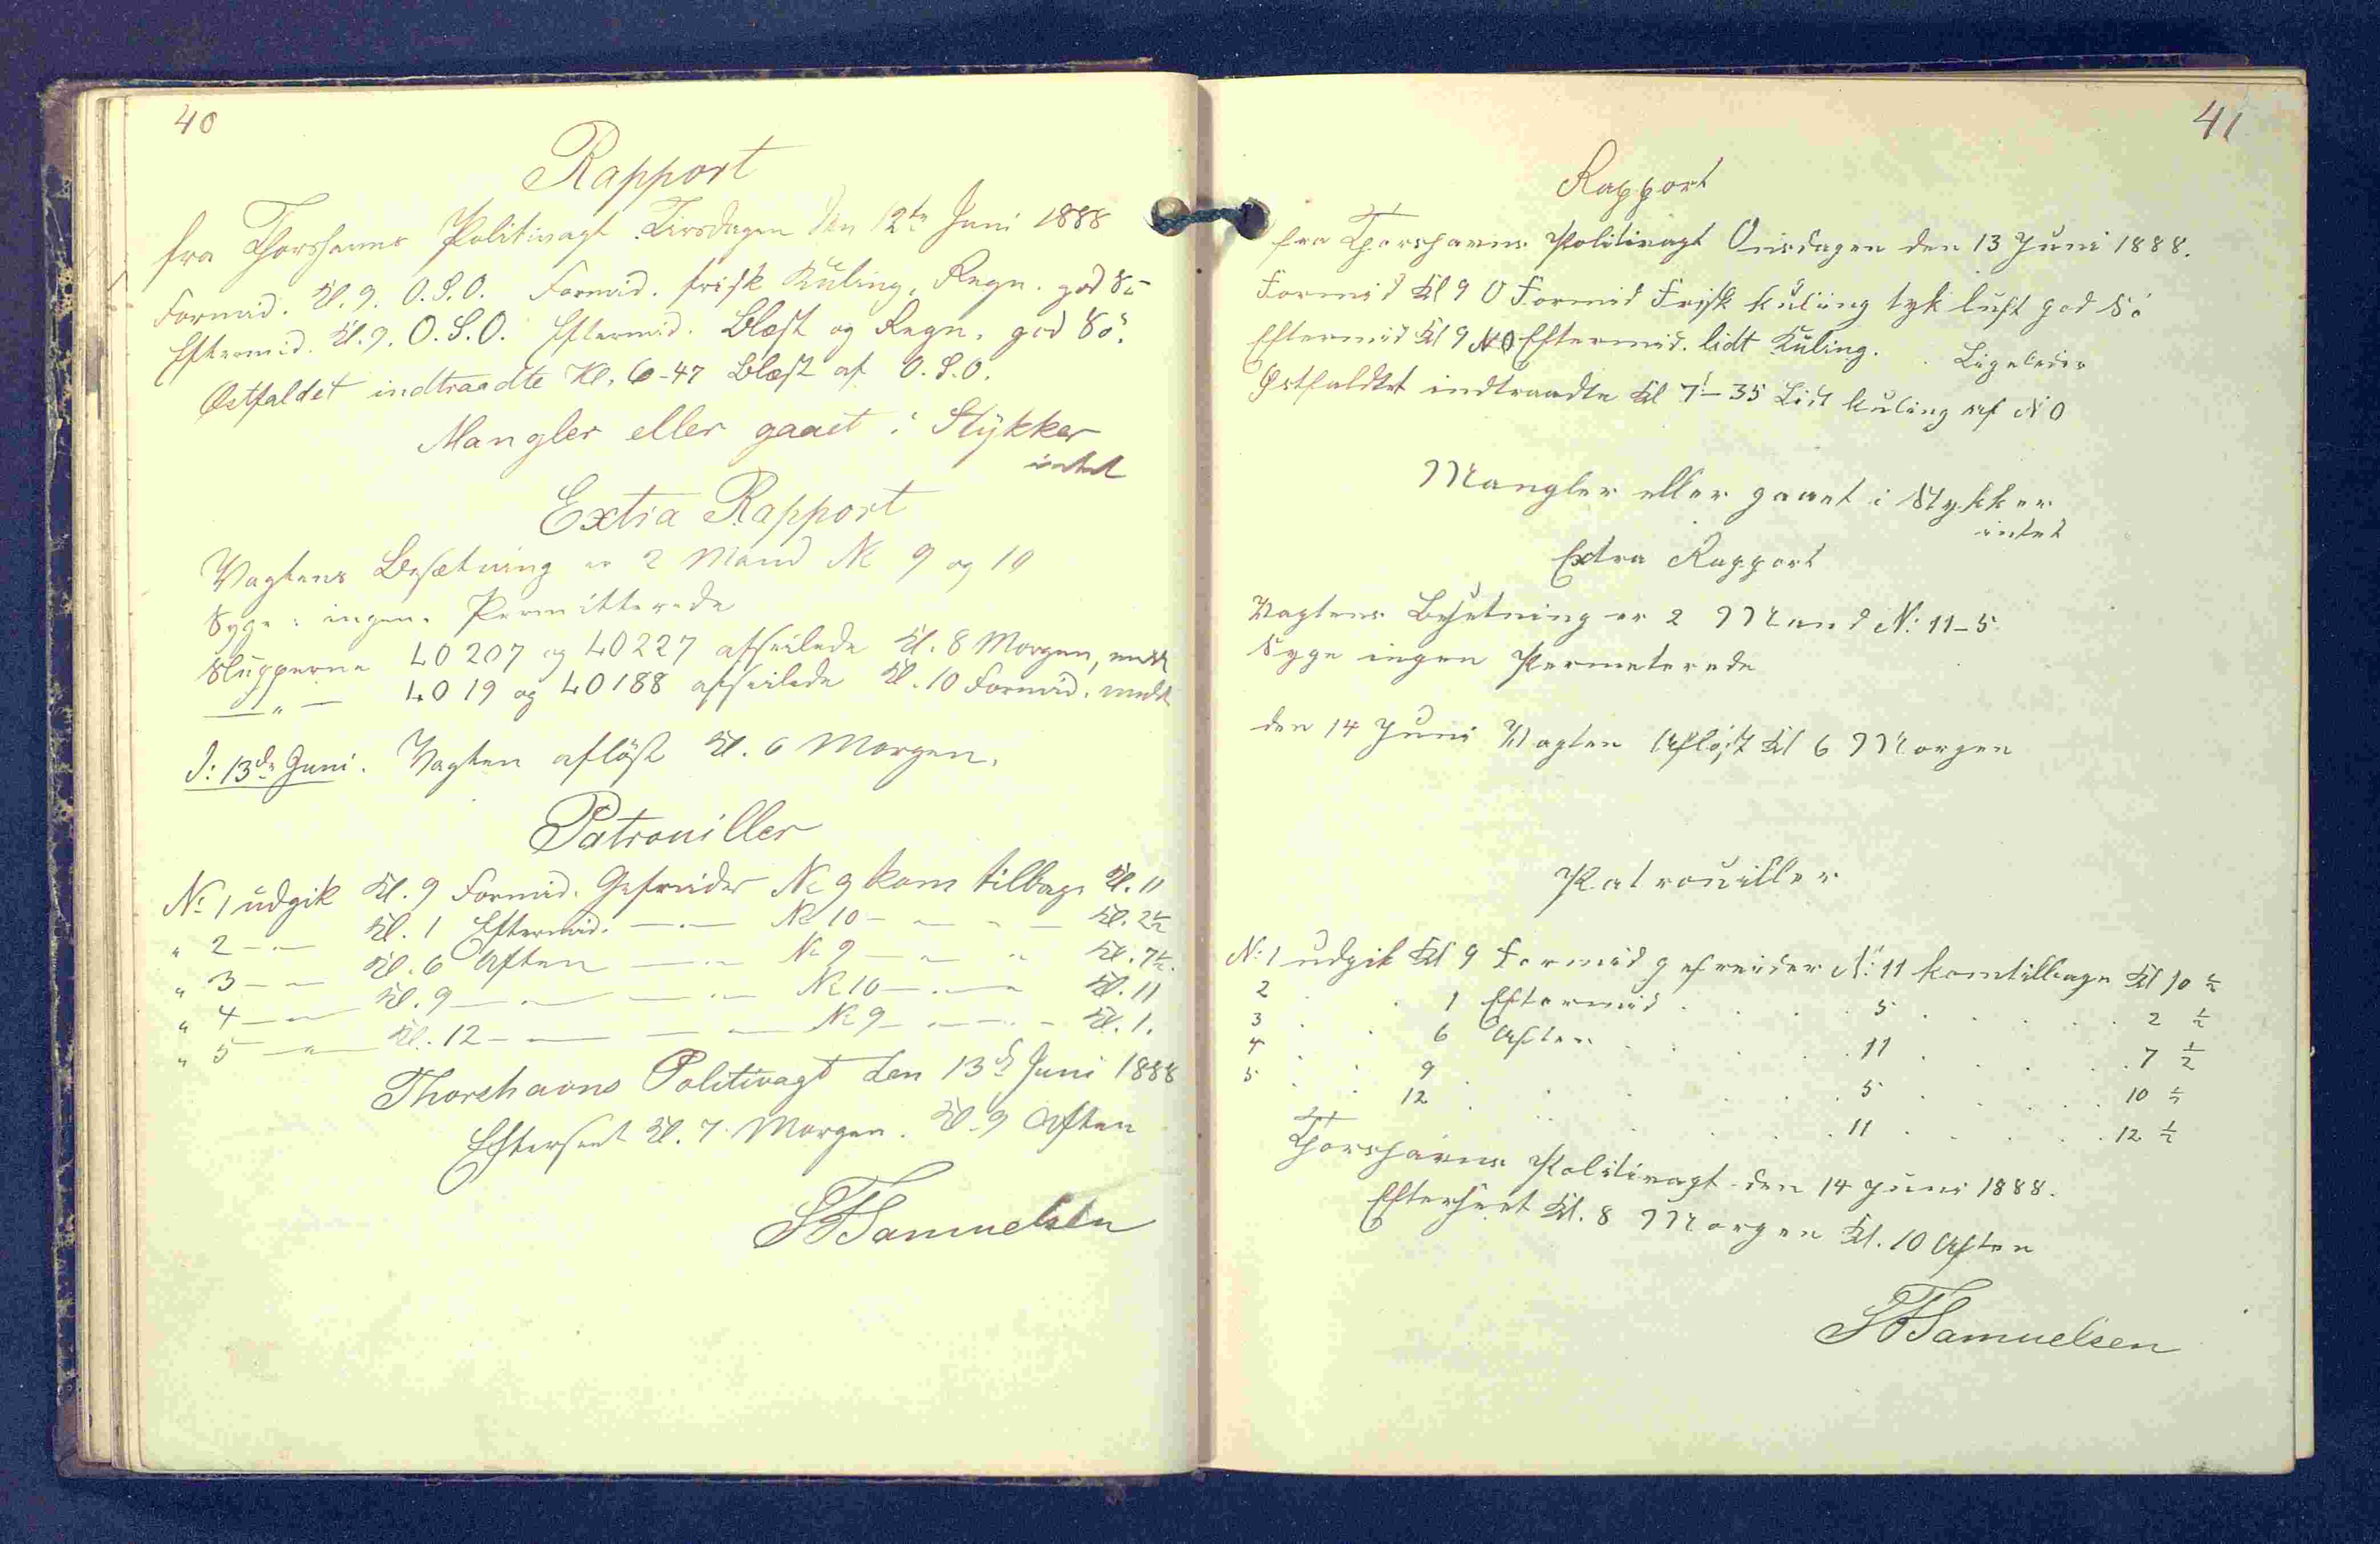 40
Rapport
fra Thorshavns Politivagt Tirsdagen den 12te Juni 1888
Formid. Kl. 9. O.S.O. Formid. frisk Kuling, Regn. god Sö
Eftermid. Kl. 9. O.S.O. Eftermid. Blæst og Regn. god Sö.
Østfaldet indtraadte Kl. 6-47 Blæst af O.S.O.
Mangler eller gaaet i Stykker
intet
Extra Rapport
Vagtens Besætning er 2 Mand No 9 og 10
Syge: ingen. Permitterede
Slupperne LO 207 og LO 227 afseilede Kl. 8 Morgen,
— " — LO 19 og LO 188 afseilede Kl. 10 Formid.
D: 13de Juni. Vagten aflöst Kl. 6 Morgen.
Patrouiller
No 1 udgik Kl. 9 Formid. Gefreider No 9 kom tilbage Kl. 11
" 2 — " — Kl. 1 Eftermid. — " — No 10 — " — " — Kl. 2½
" 3 — " — Kl. 6 Aften — " — No 9 — " — " Kl. 7½.
" 4 — " — Kl. 9 — " — — " — No 10 — " — " Kl. 11
" 5 — " — Kl. 12 — " — — " — No 9 — " — " — Kl. 1.
Thorshavns Politivagt den 13de Juni 1888
Efterseet Kl. 7 Morgen. Kl. 9 Aften
Samuelsen
41
Rapport
fra Thorshavns Politivagt Onsdagen den 13 Juni 1888.
Formid Kl 9 O Formid Frisk kuling tyk luft god Sö
Eftermid Kl 9 NO Eftermid. lidt Kuling. Ligeledes
Østfaldtet indtraadte Kl 7-35 Lidt kuling af NO
Mangler eller gaaet i Stykker
intet
Extra Rapport
Vagtens Besetning er 2 Mand N: 11-5
Syge ingen Permeterede
den 14 Juni Vagten Afløst Kl 6 Morgen
Patrouiller
N: 1 udgik Kl 9 Formid gefreider N: 11 kom tilbage Kl 10 ½
2 . . 1 Eftermid . . . 5 . . . . 2 ½
3 . . 6 Aften . . . 11 . . . . 7 ½
4 . . 9 . . . . 5 . . . . 10 ½
5 . . 12 . . . . 11 . . . . 12 ½
Thorshavns Politivagt den 14 Juni 1888.
Efterseet Kl. 8 Morgen Kl. 10 Aften
Samuelsen